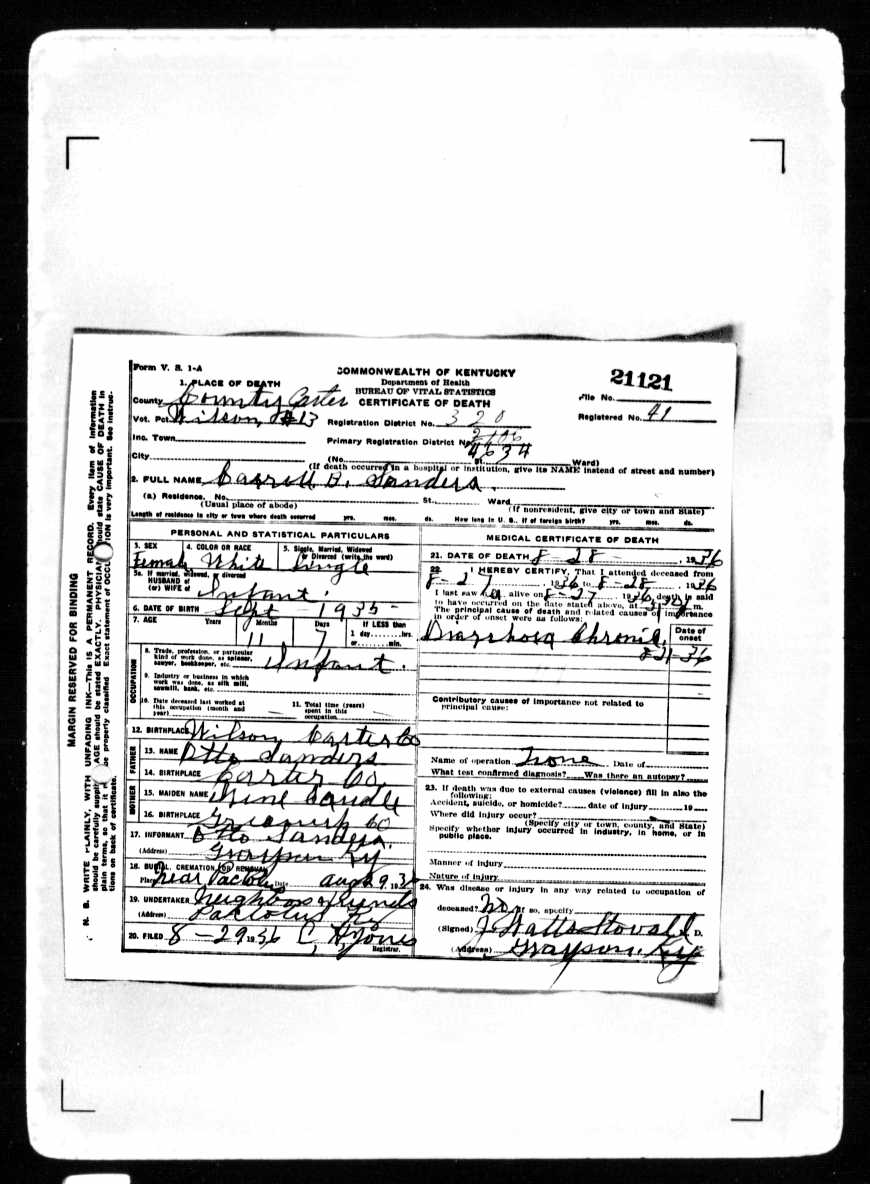 Form V. S. 1-A
COMMONWEALTH OF KENTUCKY
Department of Health
BUREAU OF VITAL STATISTICS
CERTIFICATE OF DEATH
21121
File No.
Registered No. 41
1. PLACE OF DEATH
County County Carter
Vot. Pct. Wilson, #13
Registration District No. 320
Inc. Town
Primary Registration District No. 2106
4634
City
(No. St. Ward)
(If death occurred in a hospital or institution, give its NAME instead of street and number)
2. FULL NAME Carroll B. Sanders.
(a) Residence. No. St. Ward
(Usual place of abode)
(If nonresident, give city or town and State)
Length of residence in city or town where death occurred yrs. mos. ds. How long in U. S., if of foreign birth? yrs. mos. ds.
PERSONAL AND STATISTICAL PARTICULARS
3. SEX
Female
4. COLOR OR RACE
White
5. Single, Married, Widowed or Divorced (write the word)
Single
5a. If married, widowed, or divorced
HUSBAND of
(or) WIFE of
Infant.
6. DATE OF BIRTH Sept - 1935 -
7. AGE Years Months Days If LESS than
11 7 1 day hrs.
or min.
OCCUPATION
8. Trade, profession, or particular kind of work done, as spinner, sawyer, bookkeeper, etc. Infant.
9. Industry or business in which work was done, as silk mill, sawmill, bank, etc.
10. Date deceased last worked at this occupation (month and year)
11. Total time (years) spent in this occupation
12. BIRTHPLACE Wilson, Carter Co
FATHER
13. NAME Otto Sanders
14. BIRTHPLACE Carter Co.
MOTHER
15. MAIDEN NAME
16. BIRTHPLACE Greenup Co
17. INFORMANT Otto Sanders.
(Address) Grayson Ky
18. BURIAL, CREMATION, OR REMOVAL
Place Near Pactolus Date
19. UNDERTAKER Neighbors & friends
(Address) Pactolus Ky
20. FILED 8-29 1936 C. H. Jones
Registrar.
MEDICAL CERTIFICATE OF DEATH
21. DATE OF DEATH 8-28-, 1936
22. I HEREBY CERTIFY, That I attended deceased from
8-27, 1936 to 8-28, 1936
I last saw alive on 8-27, 1936, death is said
to have occurred on the date stated above, at m.
The principal cause of death and related causes of importance
in order of onset were as follows:
Diarrhoea Chronic.
Date of onset
Contributory causes of importance not related to
principal cause:
Name of operation None Date of
What test confirmed diagnosis? Was there an autopsy?
23. If death was due to external causes (violence) fill in also the
following:
Accident, suicide, or homicide? date of injury 19
Where did injury occur?
(Specify city or town, county, and State)
Specify whether injury occurred in industry, in home, or in
public place.
Manner of injury
Nature of injury
24. Was disease or injury in any way related to occupation of
deceased? No If so, specify
(Signed) J. Watts Stovall M. D.
(Address) Grayson, Ky
MARGIN RESERVED FOR BINDING
N. B. WRITE PLAINLY, WITH UNFADING INK—This is A PERMANENT RECORD. Every item of information
should be carefully supplied. AGE should be stated EXACTLY. PHYSICIANS should state CAUSE OF DEATH in
plain terms, so that it may be properly classified. Exact statement of OCCUPATION is very important. See instruc-
tions on back of certificate.